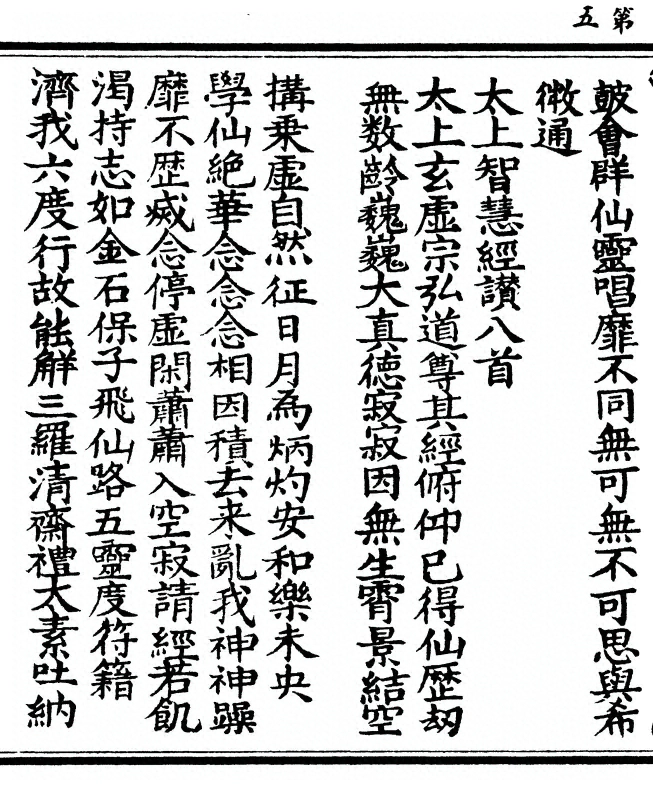 第五
皷會群仙靈唱靡不同無可無不可思與希
微通
太上智慧經讃八首
太上玄虛宗弘道尊其經俯仰已得仙歷劫
無数齡巍巍大真德寂寂因無生霄景結空
搆乗虛自然征日月為炳灼安和樂未央
學仙絶華念念念相因積去来亂我神神躁
靡不歷滅念停虛閑蕭蕭入空寂請經若飢
渴持志如金石保子飛仙路五靈度符籍
濟我六度行故能解三羅清齋禮太素吐納